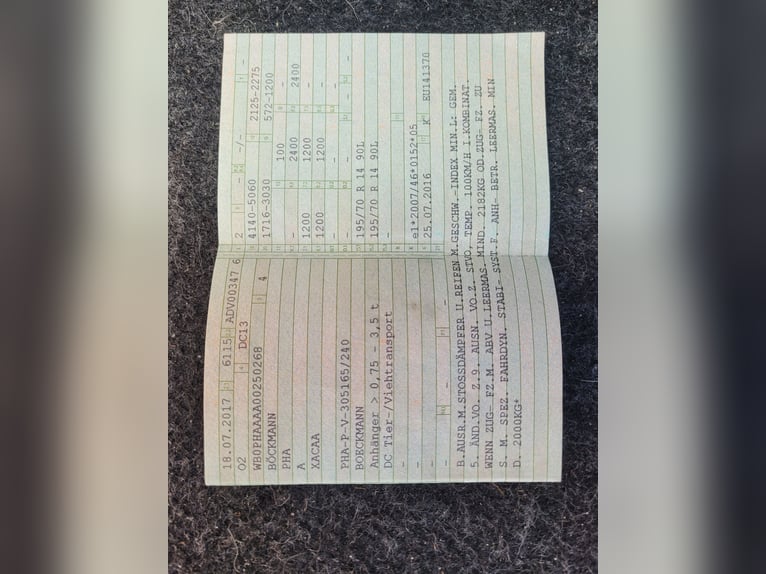 18.07.2017 6115 ADV00347 6
O2 DC13
WBOPHAAAA00250268 4
BÖCKMANN
PHA
A
XACAA
–
PHA-P-V-305165/240
BOECKMANN
Anhänger > 0,75 - 3,5 t
DC Tier-/Viehtransport
–
–
– – –
– – –
2 – –/– –
4140-5060 2125-2275
1716-3030 572-1200
– 100 –
– 2400 2400
1200 1200 –
1200 1200 –
– – –
– – – –
195/70 R 14 90L
195/70 R 14 90L
–
–
e1*2007/46*0152*05
25.07.2016 K EU141370
B.AUSR.M.STOSSDÄMPFER U.REIFEN M.GESCHW.-INDEX MIN.L: GEM.
5. ÄND.VO. Z.9. AUSN. VO.Z. STVO, TEMP. 100KM/H I.KOMBINAT.
WENN ZUG- FZ.M. ABV U.LEERMAS. MIND. 2182KG OD.ZUG- FZ. ZU
S. M. SPEZ. FAHRDYN. STABI- SYST.F. ANH- BETR. LEERMAS. MIN
D. 2000KG*